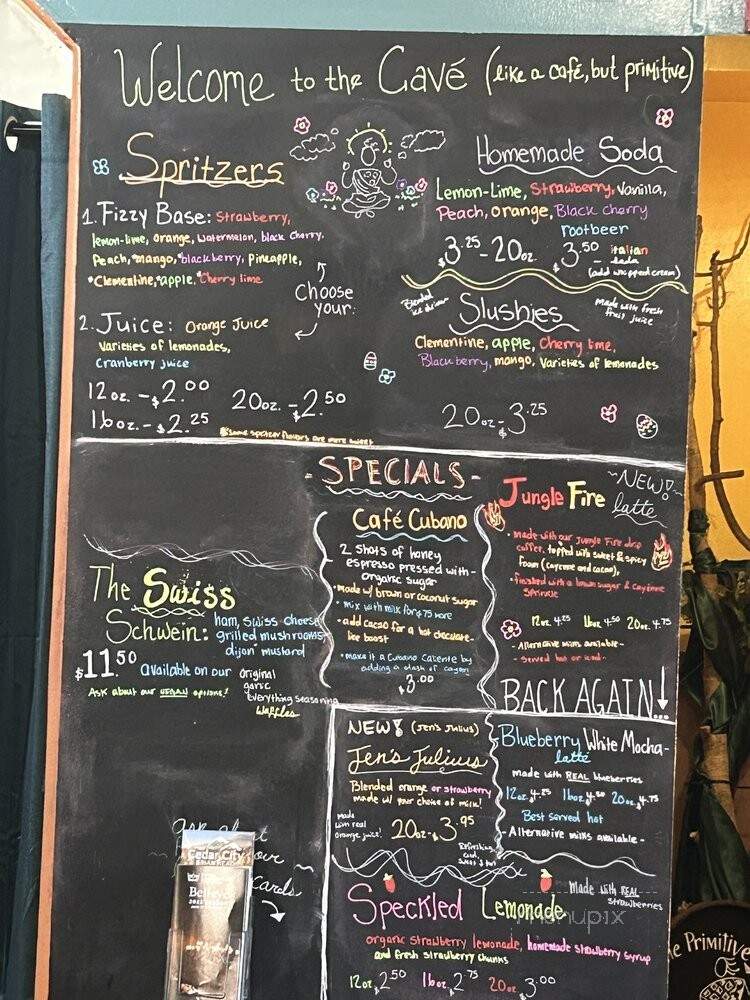 Welcome to the Cavé (like a café, but primitive)
Spritzers
1. Fizzy Base: Strawberry,
lemon-lime, orange, watermelon, black cherry,
Peach, mango, blackberry, pineapple,
*Clementine, apple, *Cherry lime
Choose
your:
2. Juice: Orange Juice
Varieties of lemonades,
Cranberry juice
12oz. - $2.00
16oz. - $2.25
20oz. - $2.50
*Some spritzer flavors are more sweet
Homemade Soda
Lemon-Lime, Strawberry, Vanilla,
Peach, orange, Black cherry
rootbeer
$3.25 - 20oz.
$3.50 italian
soda
(add whipped cream)
Blended
ice drinks
Slushies
made with fresh
fruit juice
Clementine, apple, Cherry lime,
Blackberry, mango, Varieties of lemonades
20oz - $3.25
- SPECIALS -
Café Cubano
2 shots of honey
espresso pressed with
organic sugar
• made w/ brown or coconut sugar
• mix with milk for $.75 more
• add cacao for a hot chocolate-
like boost
• make it a Cubano Caliente by
adding a dash of cayenne
$3.00
~NEW!~
Jungle Fire latte
• made with our Jungle Fire drip
coffee, topped with sweet & spicy
foam (cayenne and cacao),
• finished with a brown sugar & cayenne
sprinkle
12oz 4.25 16oz 4.50 20oz 4.75
- Alternative milks available -
- Served hot or iced -
The Swiss
Schwein: ham, swiss cheese
grilled mushrooms
dijon mustard
$11.50 available on our original
garlic
everything seasoning
Waffles
Ask about our VEGAN options!
BACK AGAIN...
Blueberry White Mocha-
latte
made with REAL blueberries
12oz 4.25 16oz 4.50 20oz 4.75
Best served hot
- Alternative milks available -
NEW! (Jen's Julius)
Jen's Julius
Blended orange or strawberry
made w/ your choice of milk!
made
with real
orange juice!
20oz - $3.95
Speckled Lemonade
made with REAL
strawberries
organic strawberry lemonade, homemade strawberry syrup
and fresh strawberry chunks
12oz $2.50 16oz $2.75 20oz $3.00
our
Cards
Cedar City
Believe
menupix
e Primitive